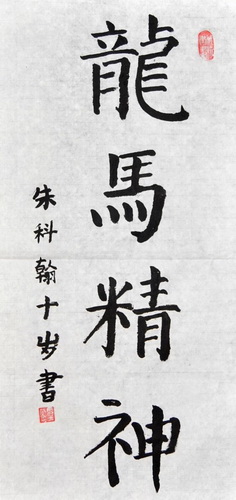 龍馬精神
朱科翰十岁書